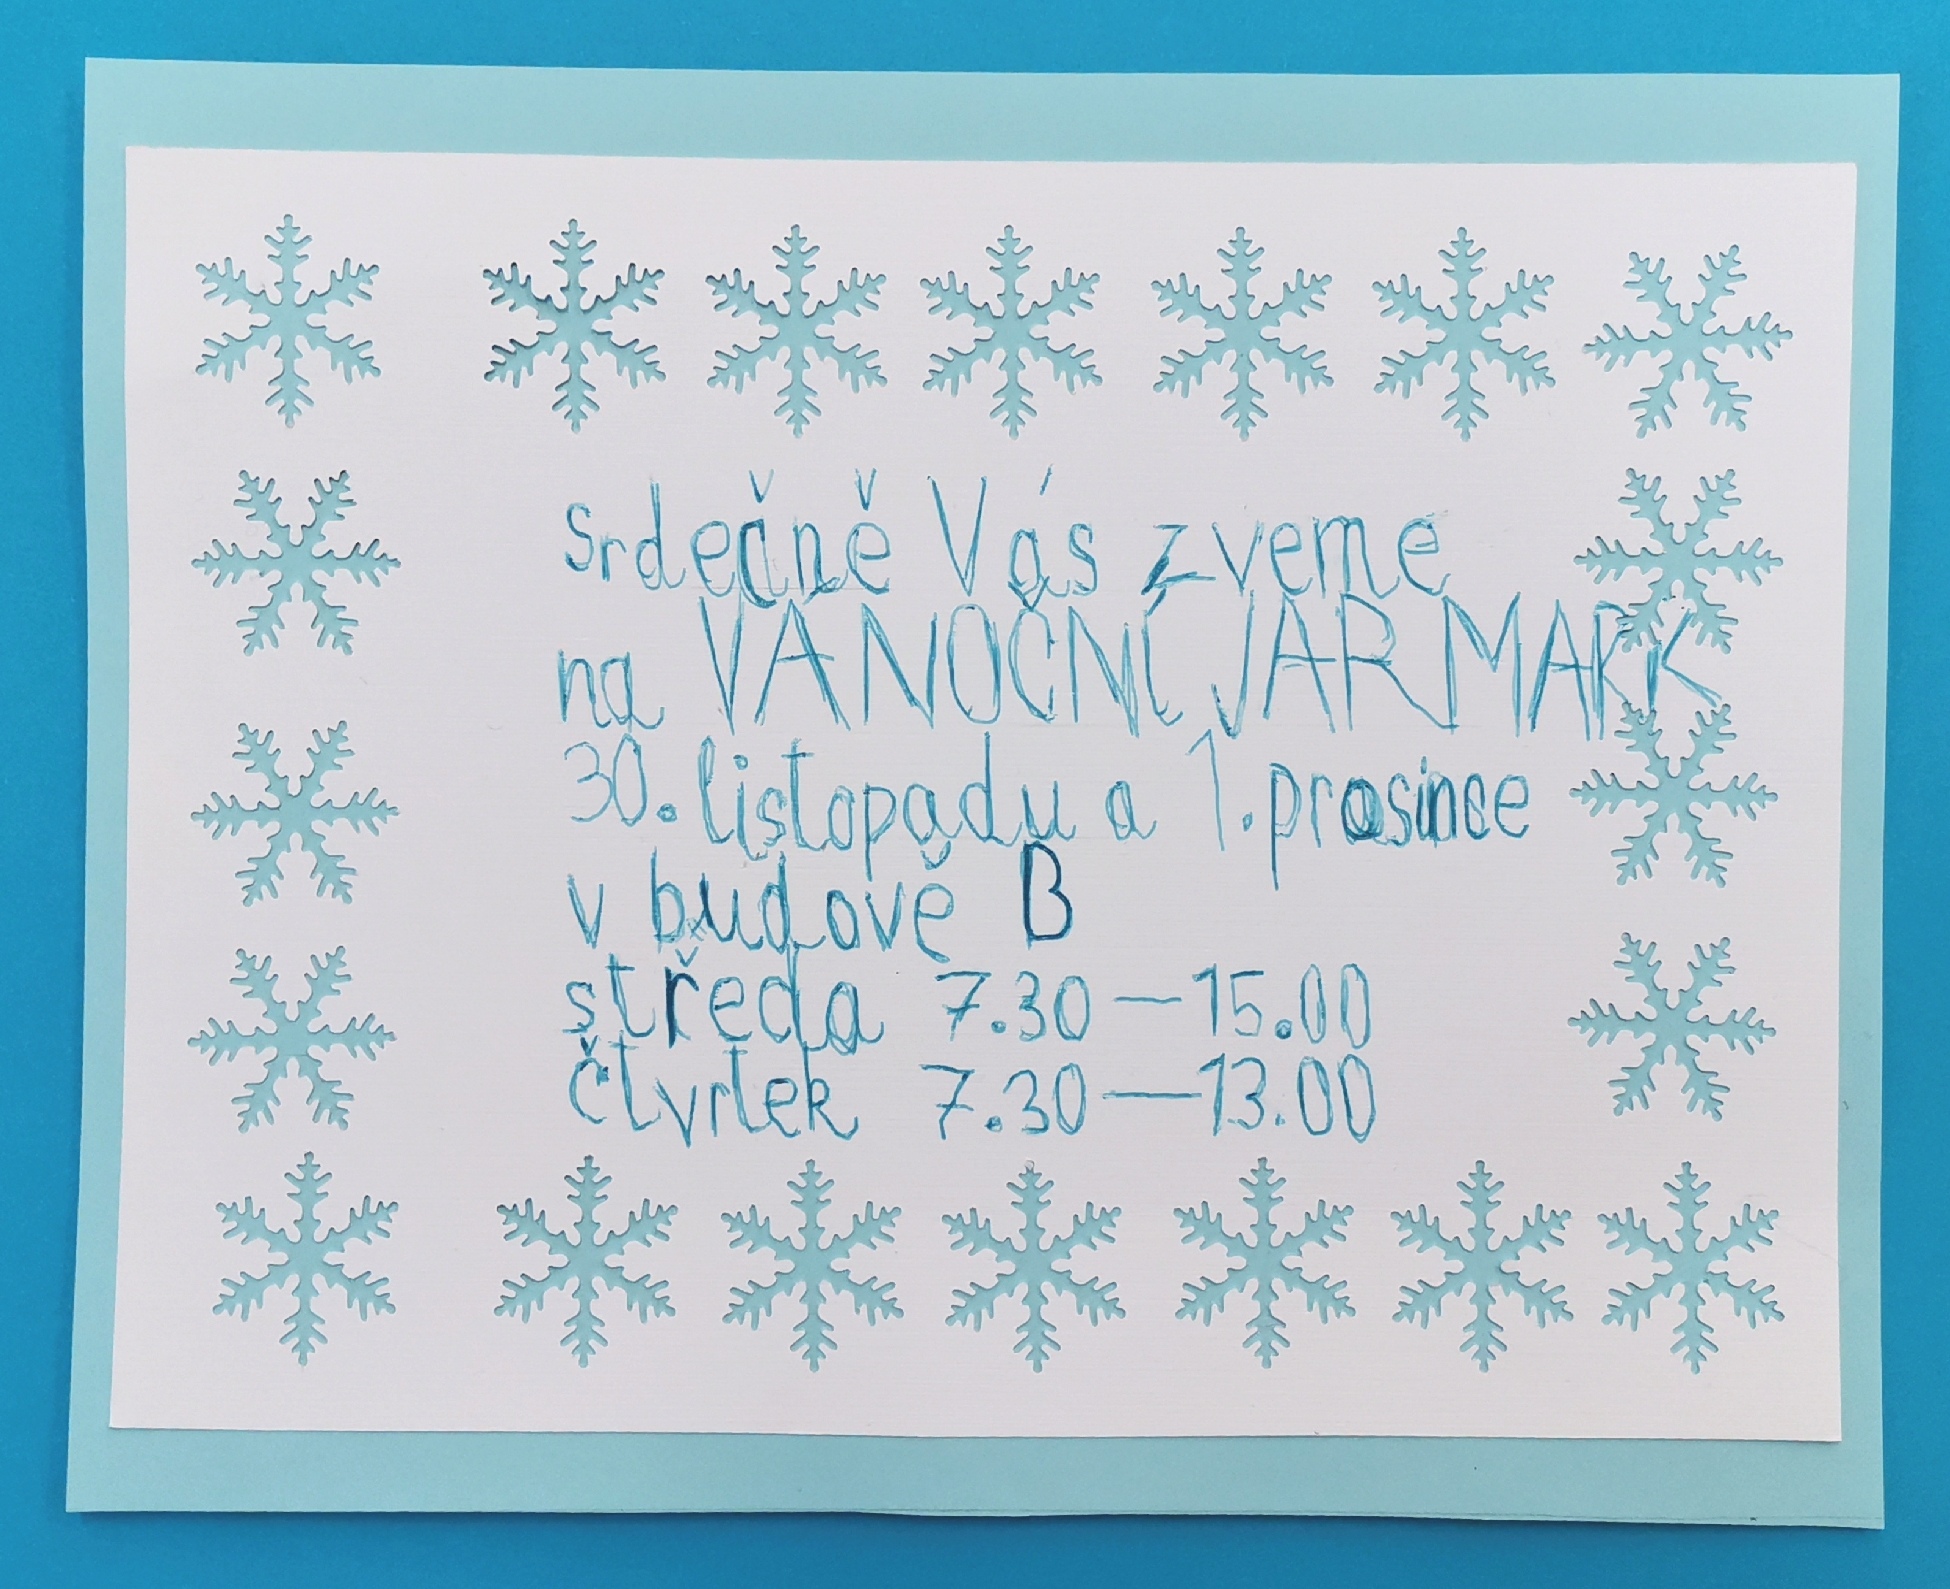 srdečně Vás zveme
na VÁNOČNÍ JARMARK
30. listopadu a 1. prosince
v budově B
středa 7.30 — 15.00
čtvrtek 7.30 — 13.00